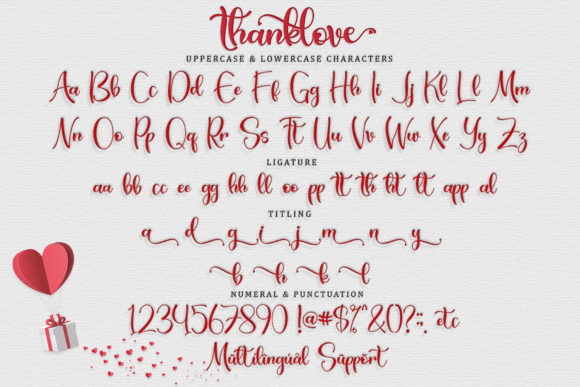 thanklove
UPPERCASE & LOWERCASE CHARACTERS
Aa Bb Cc Dd Ee Ff Gg Hh Ii Jj Kk Ll Mm
Nn Oo Pp Qq Rr Ss Tt Uu Vv Ww Xx Yy Zz
LIGATURE
aa bb cc ee gg hh ll oo pp tt th ht lt app al
TITLING
a d g i j m n y
b h k l
NUMERAL & PUNCTUATION
1234567890 !@#$%^&()?:; etc
Multilingual Support